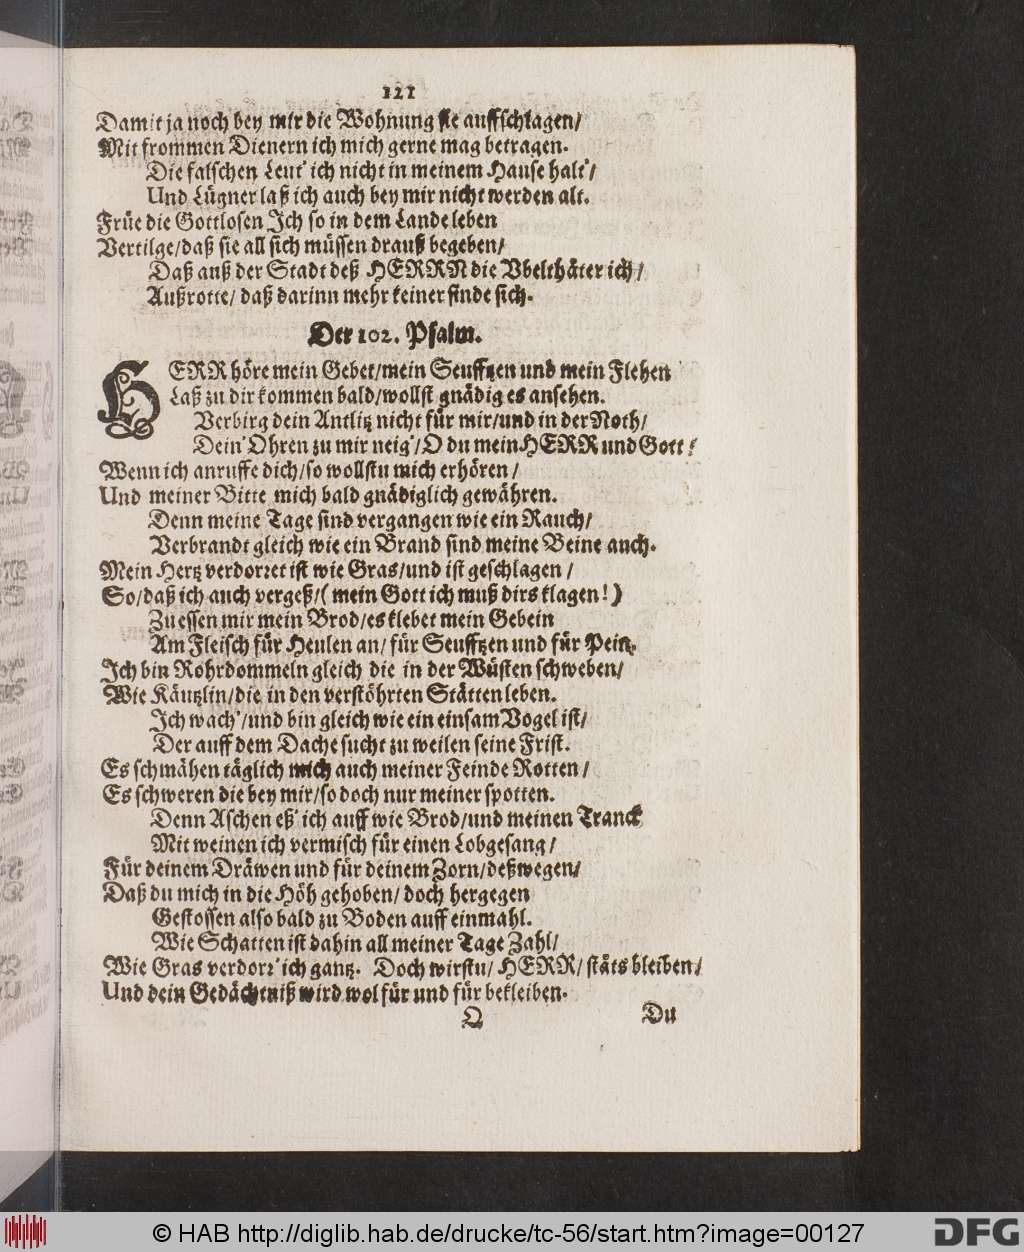 121
Damit ja noch bey mir die Wohnung sie auffschlagen/
Mit frommen Dienern ich mich gerne mag betragen.
Die falschen Leut' ich nicht in meinem Hause halt'/
Und Lügner laß ich auch bey mir nicht werden alt.
Früe die Gottlosen Ich so in dem Lande leben
Vertilge/daß sie all sich müssen drauß begeben/
Daß auß der Stadt deß HERRN die Vbelthäter ich/
Außrotte/ daß darinn mehr keiner finde sich.
Der 102. Psalm.
HERR höre mein Gebet/mein Seufftzen und mein Flehen
Laß zu dir kommen bald/wollst gnädig es ansehen.
Verbirg dein Antlitz nicht für mir/und in der Noth/
Dein' Ohren zu mir neig'/O du mein HERR und Gott/
Wenn ich anruffe dich/so wollstu mich erhören/
Und meiner Bitte mich bald gnädiglich gewähren.
Denn meine Tage sind vergangen wie ein Rauch/
Verbrandt gleich wie ein Brand sind meine Beine auch.
Mein Hertz verdorret ist wie Gras/und ist geschlagen/
So/daß ich auch vergeß/(mein Gott ich muß dirs klagen!)
Zu essen mir mein Brod/es klebet mein Gebein
Am Fleisch für Heulen an/ für Seufftzen und für Pein.
Ich bin Rohrdommeln gleich die in der Wüsten schweben/
Wie Käutzlin/die in den verstöhrten Stätten leben.
Ich wach'/und bin gleich wie ein einsam Vogel ist/
Der auff dem Dache sucht zu weilen seine Frist.
Es schmähen täglich mich auch meiner Feinde Rotten/
Es schweren die bey mir/so doch nur meiner spotten.
Denn Aschen eß' ich auff wie Brod/und meinen Tranck
Mit weinen ich vermisch für einen Lobgesang/
Für deinem Dräwen und für deinem Zorn/deßwegen/
Daß du mich in die Höh gehoben/ doch hergegen
Gestossen also bald zu Boden auff einmahl.
Wie Schatten ist dahin all meiner Tage Zahl/
Wie Gras verdorr' ich gantz. Doch wirstu/ HERR/ stäts bleiben/
Und dein Gedächtniß wird wol für und für bekleiben.
Q Du
© HAB http://diglib.hab.de/drucke/tc-56/start.htm?image=00127 DFG